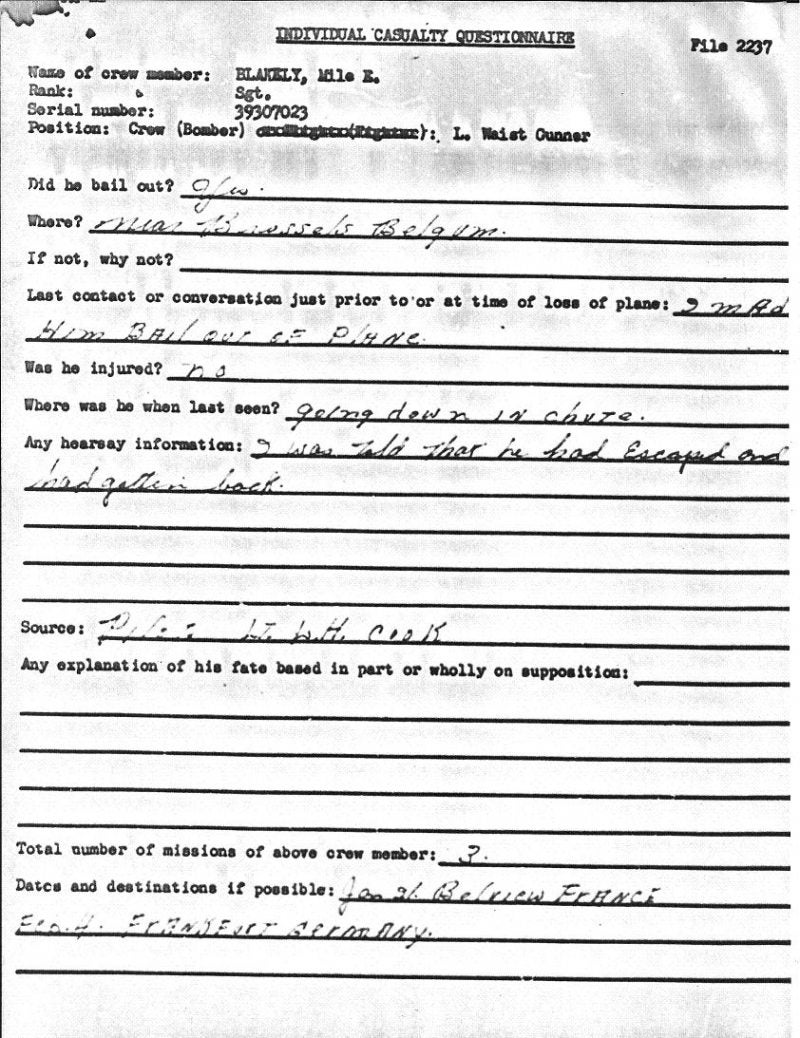 INDIVIDUAL CASUALTY QUESTIONNAIRE
File 2237
Name of crew member: BLAKELY, Mile E.
Rank: Sgt.
Serial number: 39307023
Position: Crew (Bomber) or Flight (Fighter): L. Waist Gunner
Did he bail out? Yes.
Where? near Brussels Belgum.
If not, why not?
Last contact or conversation just prior to or at time of loss of plane: I mAd
Him BAil out oF PlANe.
Was he injured? no
Where was he when last seen? going down in chute.
Any hearsay information: I was told that he had Escaped and
had gotten back.
Source: Pilot Lt. W.H. COOK
Any explanation of his fate based in part or wholly on supposition:
Total number of missions of above crew member: 3.
Dates and destinations if possible: Jan 21. Belview FrANCE
Feb. 4. FrANKFurt GermANy.